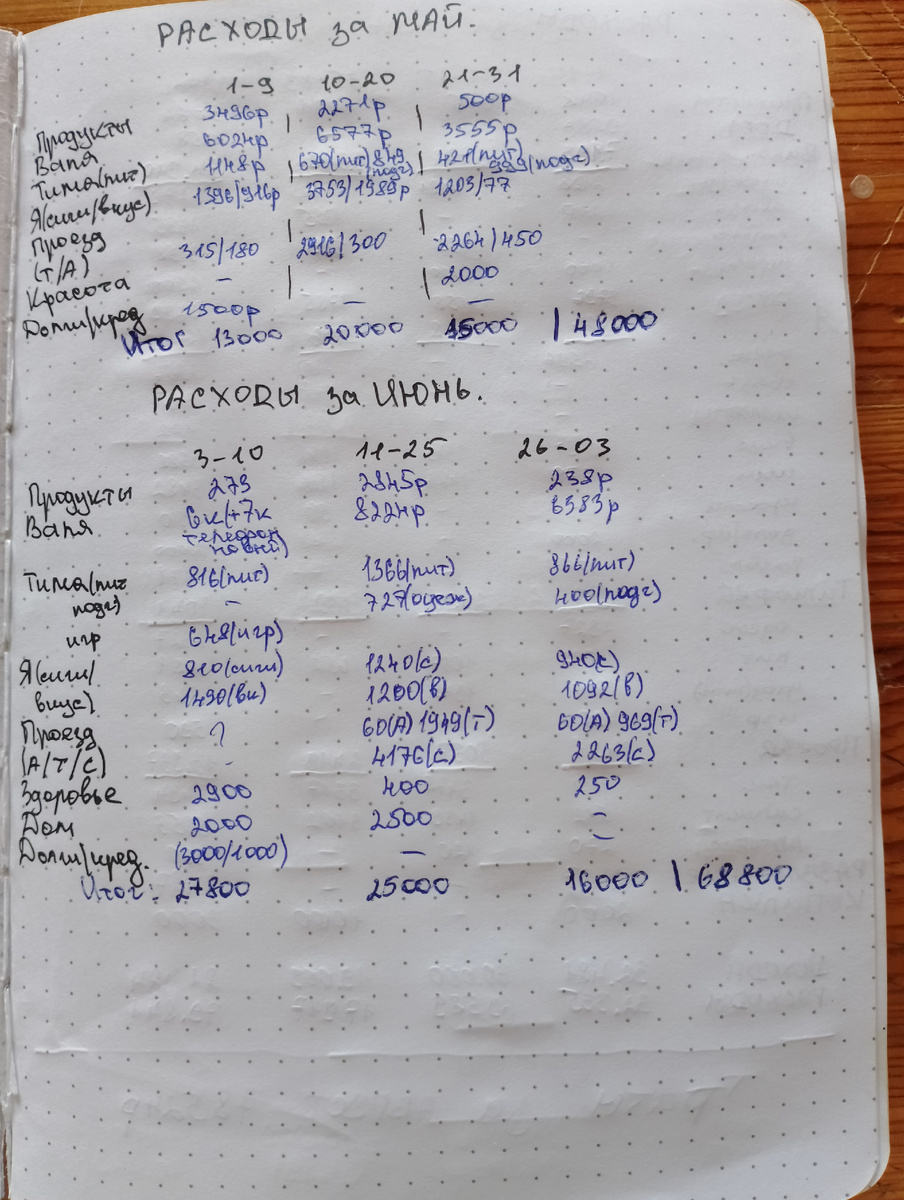 РАСХОДЫ за МАЙ.
1-9 10-20 21-31
Продукты 3496р | 2271р | 500р
Ваня 6024р 6577р 3555р
Тима(пит) 1148р | 670(пит) 849(подг) | 421(пит) 999(подг)
Я(сиги/вкус) 1396/916р 3753/1989р 1203/77
Проезд (Т/А) 315/180 | 2916/300 | 2264/450
Красота – | | 2000
Долги/кред 1500р – –
Итог 13000 20000 15000 | 48000
РАСХОДЫ за ИЮНЬ.
3-10 11-25 26-03
Продукты 273 2845р 238р
Ваня 6к(+7к 8224р 6383р
телефон
новый)
Тима(пит 816(пит) 1366(пит) 866(пит)
подг) – 727(одеж) 400(подг)
игр 648(игр)
Я(сиги/ 810(сиги) 1240(с) 940(с)
вкус) 1490(вк) 1200(в) 1092(в)
Проезд ? 60(А) 1949(Т) 60(А) 969(Т)
(А/Т/С) - 4176(с) 2263(с)
Здоровье 2900 400 250
Дом 2000 2500 –
Долги/кред. (3000/1000) – –
Итог: 27800 25000 16000 | 68800